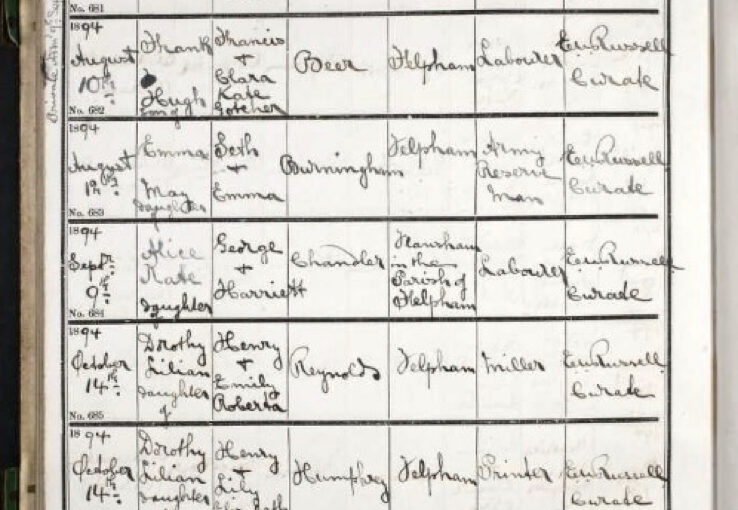 No. 681
1894
August
10th
No. 682
Frank
Hugh
son of
Francis
+
Clara
Kate
Gotcher
Beer
Felpham
Labourer
E.W. Russell
Curate
1894
August
19th
No. 683
Emma
May
daughter
Seth
+
Emma
Burningham
Felpham
Army
Reserve
man
E.W. Russell
Curate
1894
Septr
9th
No. 684
Alice
Kate
daughter
of
George
+
Harriett
Chandler
Flansham
in the
Parish of
Felpham
Labourer
E.W. Russell
Curate
1894
October
14th
No. 685
Dorothy
Lilian
daughter
of
Henry
+
Emily
Roberta
Reynolds
Felpham
Miller
E.W. Russell
Curate
1894
October
14th
Dorothy
Lilian
daughter
Henry
+
Lily
Humphrey
Felpham
Printer
E.W. Russell
Curate